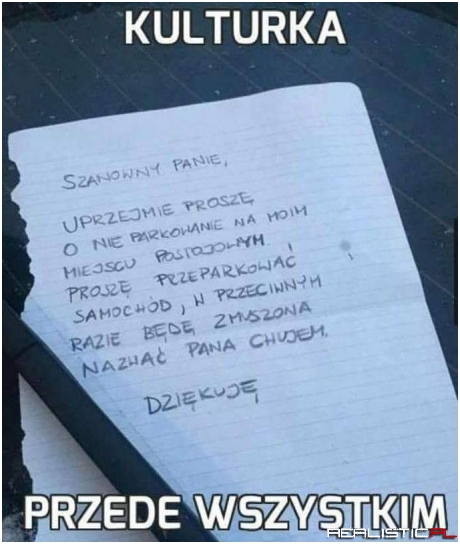 KULTURKA
SZANOWNY PANIE,
UPRZEJMIE PROSZĘ
O NIE PARKOWANIE NA MOIM
MIEJSCU POSTOJOWYM.
PROSZĘ PRZEPARKOWAĆ
SAMOCHÓD, W PRZECIWNYM
RAZIE BĘDĘ ZMUSZONA
NAZWAĆ PANA CHUJEM.
DZIĘKUJĘ
PRZEDE WSZYSTKIM
REALISTIC.PL